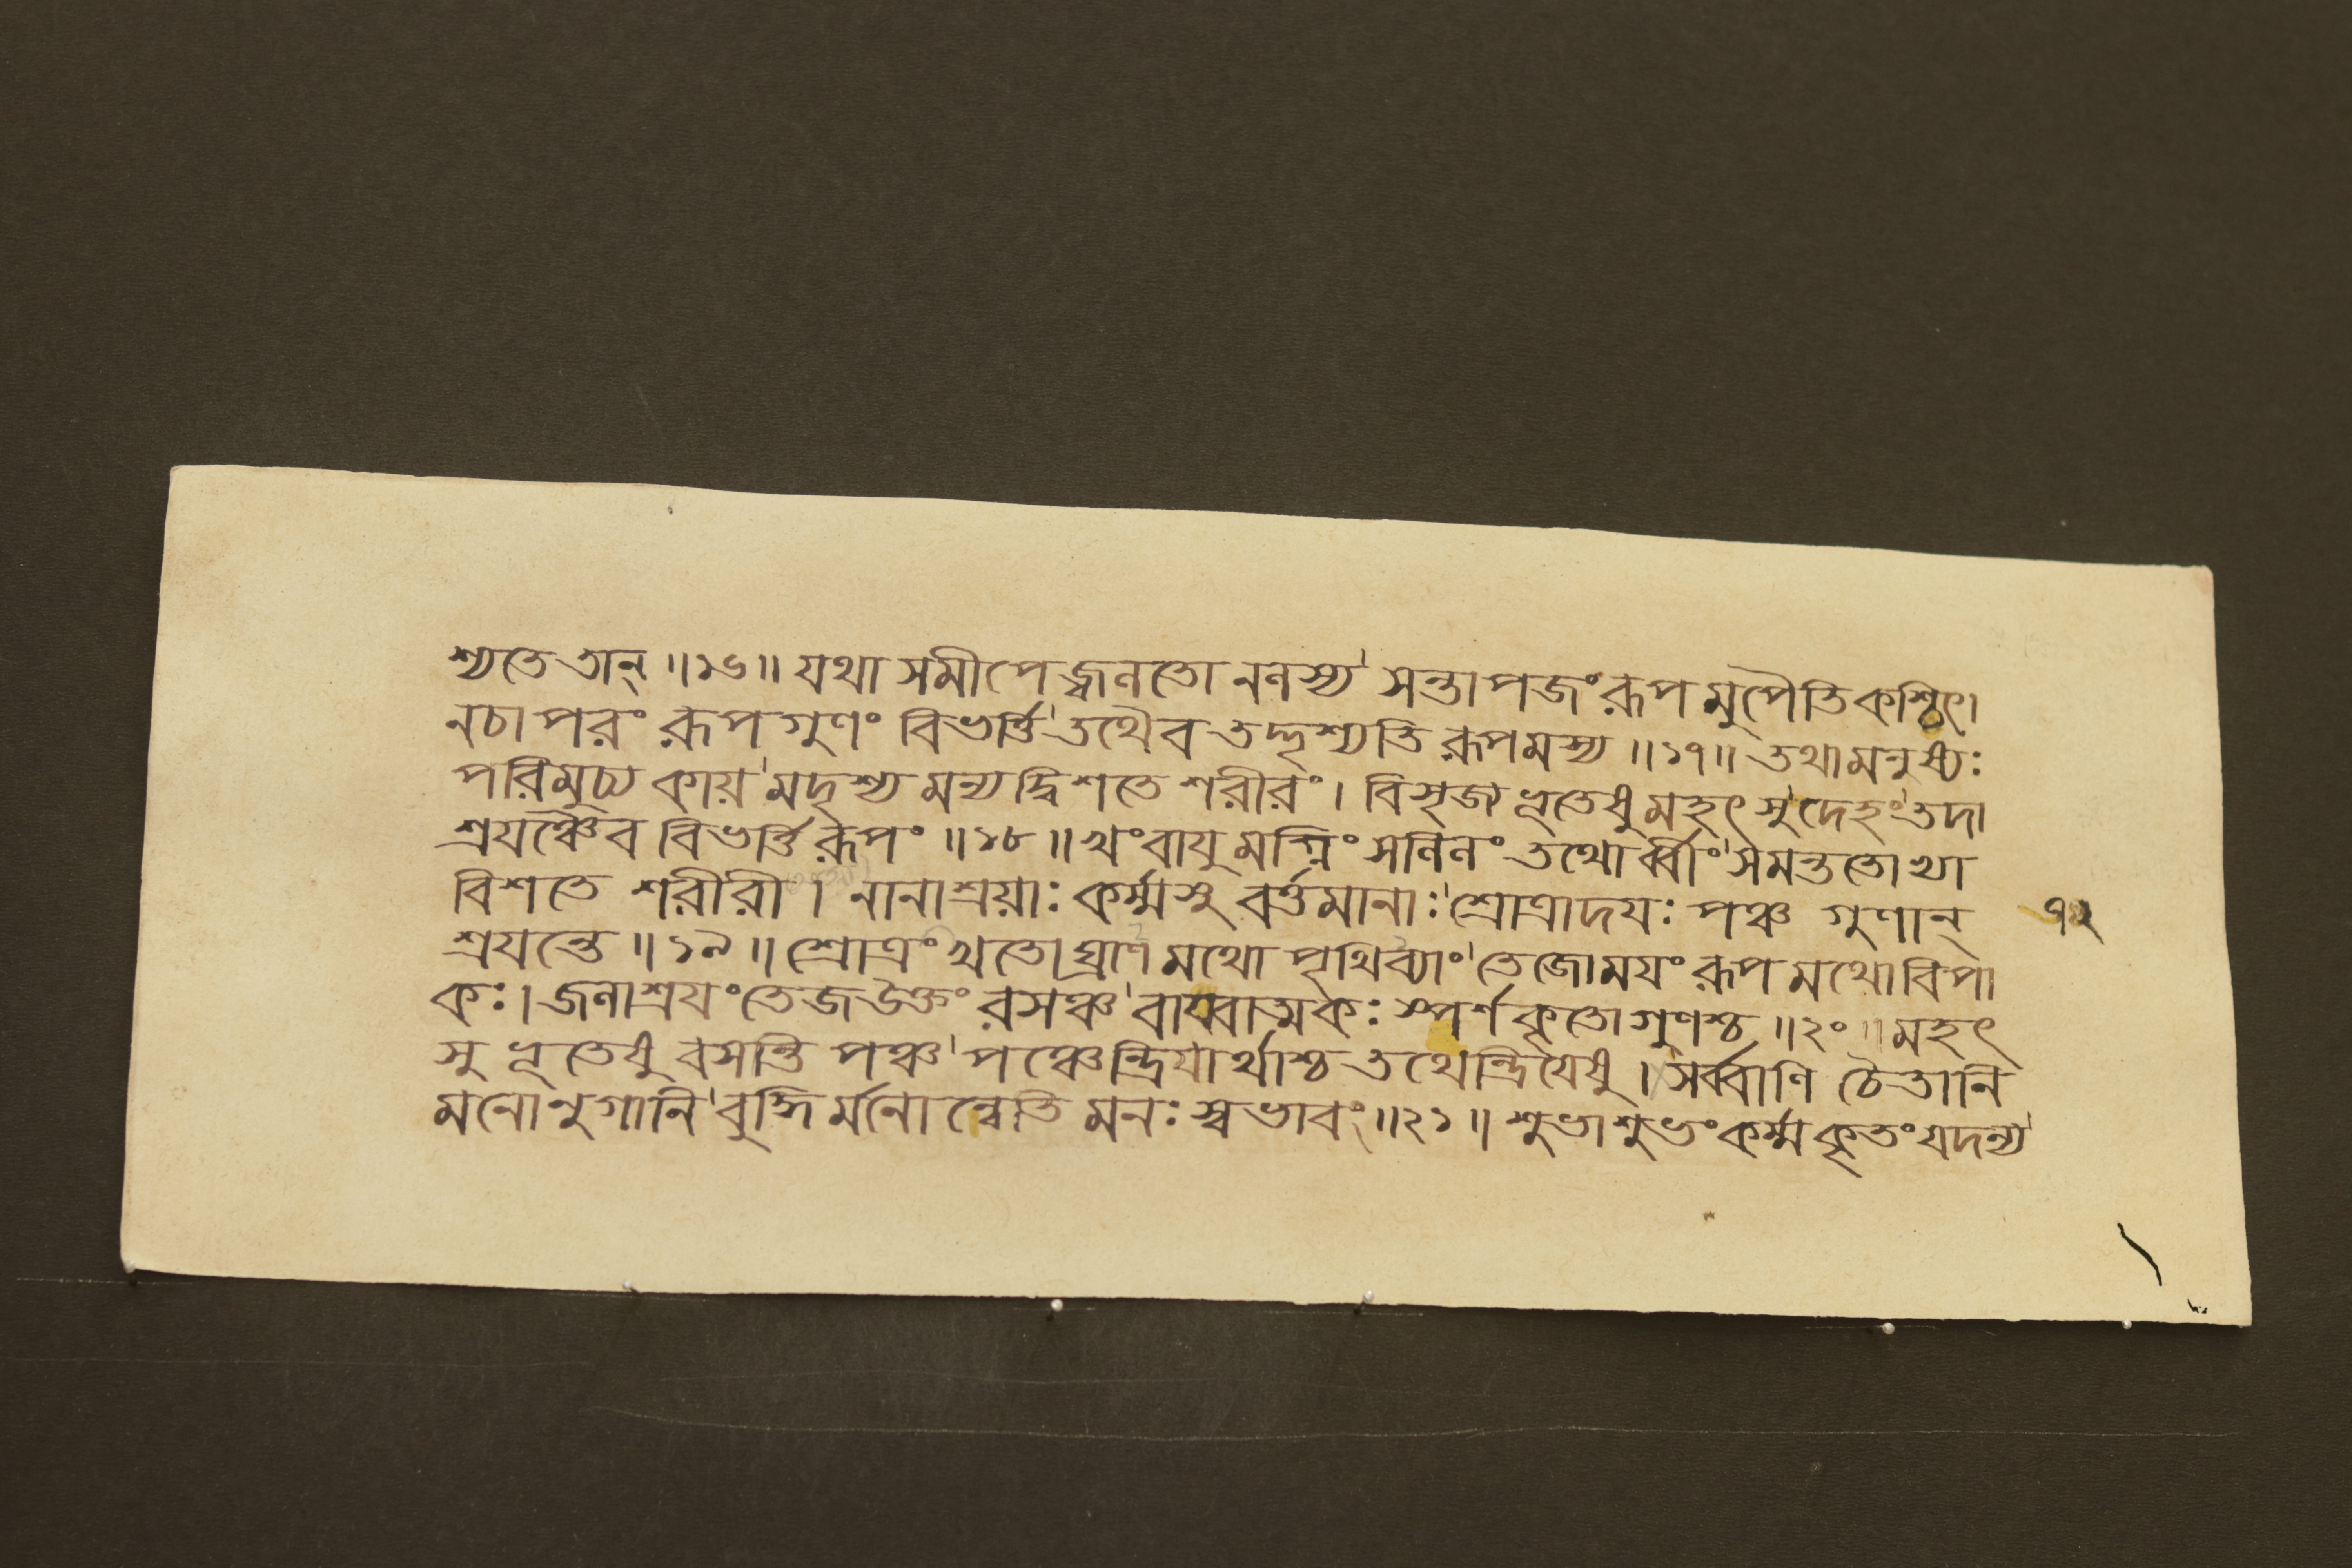 শ্যতে তান্ ॥১৬॥ যথা সমীপে জ্বলতো নলস্য' সন্তাপজং রূপ মুপৈতি কশ্চিৎ।
ন চা পরং রূপ গুণং বিভর্ত্তি' তথৈব তদ্দৃশ্যতি রূপমস্য ॥১৭॥ তথা মনুষ্যঃ
পরিমুচ্য কায়' মদৃশ্য মন্যদ্বিশতে শরীরং। বিসৃজ্য ভূতেষু মহৎ সু দেহং' তদা
শ্রয়ঞ্চৈব বিভর্ত্তি রূপং ॥১৮॥ খং বায়ু মগ্নিং সলিলং তথোর্ব্বীং' সমন্ততো ভ্যা
বিশতে শরীরী। নানাশ্রয়াঃ কর্ম্মসু বর্ত্তমানাঃ' শ্রোত্রাদয়ঃ পঞ্চ গুণান্
৭২
শ্রয়ন্তে ॥১৯॥ শ্রোত্রং খতো ঘ্রাণ মথো পৃথিব্যাং' তেজোময়ং রূপ মথো বিপা
কঃ। জলাশ্রয়ং তেজ উক্তং রসঞ্চ' বায়্বাত্মকঃ স্পর্শকৃতো গুণশ্চ ॥২০॥ মহৎ
সু ভূতেষু বসন্তি পঞ্চ' পঞ্চেন্দ্রিয়ার্থাশ্চ তথেন্দ্রিয়েষু। সর্ব্বাণি চৈতানি
মনোনুগানি' বুদ্ধির্মনো ন্বেতি মনঃ স্বভাবং ॥২১॥ শুভাশুভং কর্ম্ম কৃতং যদন্য'